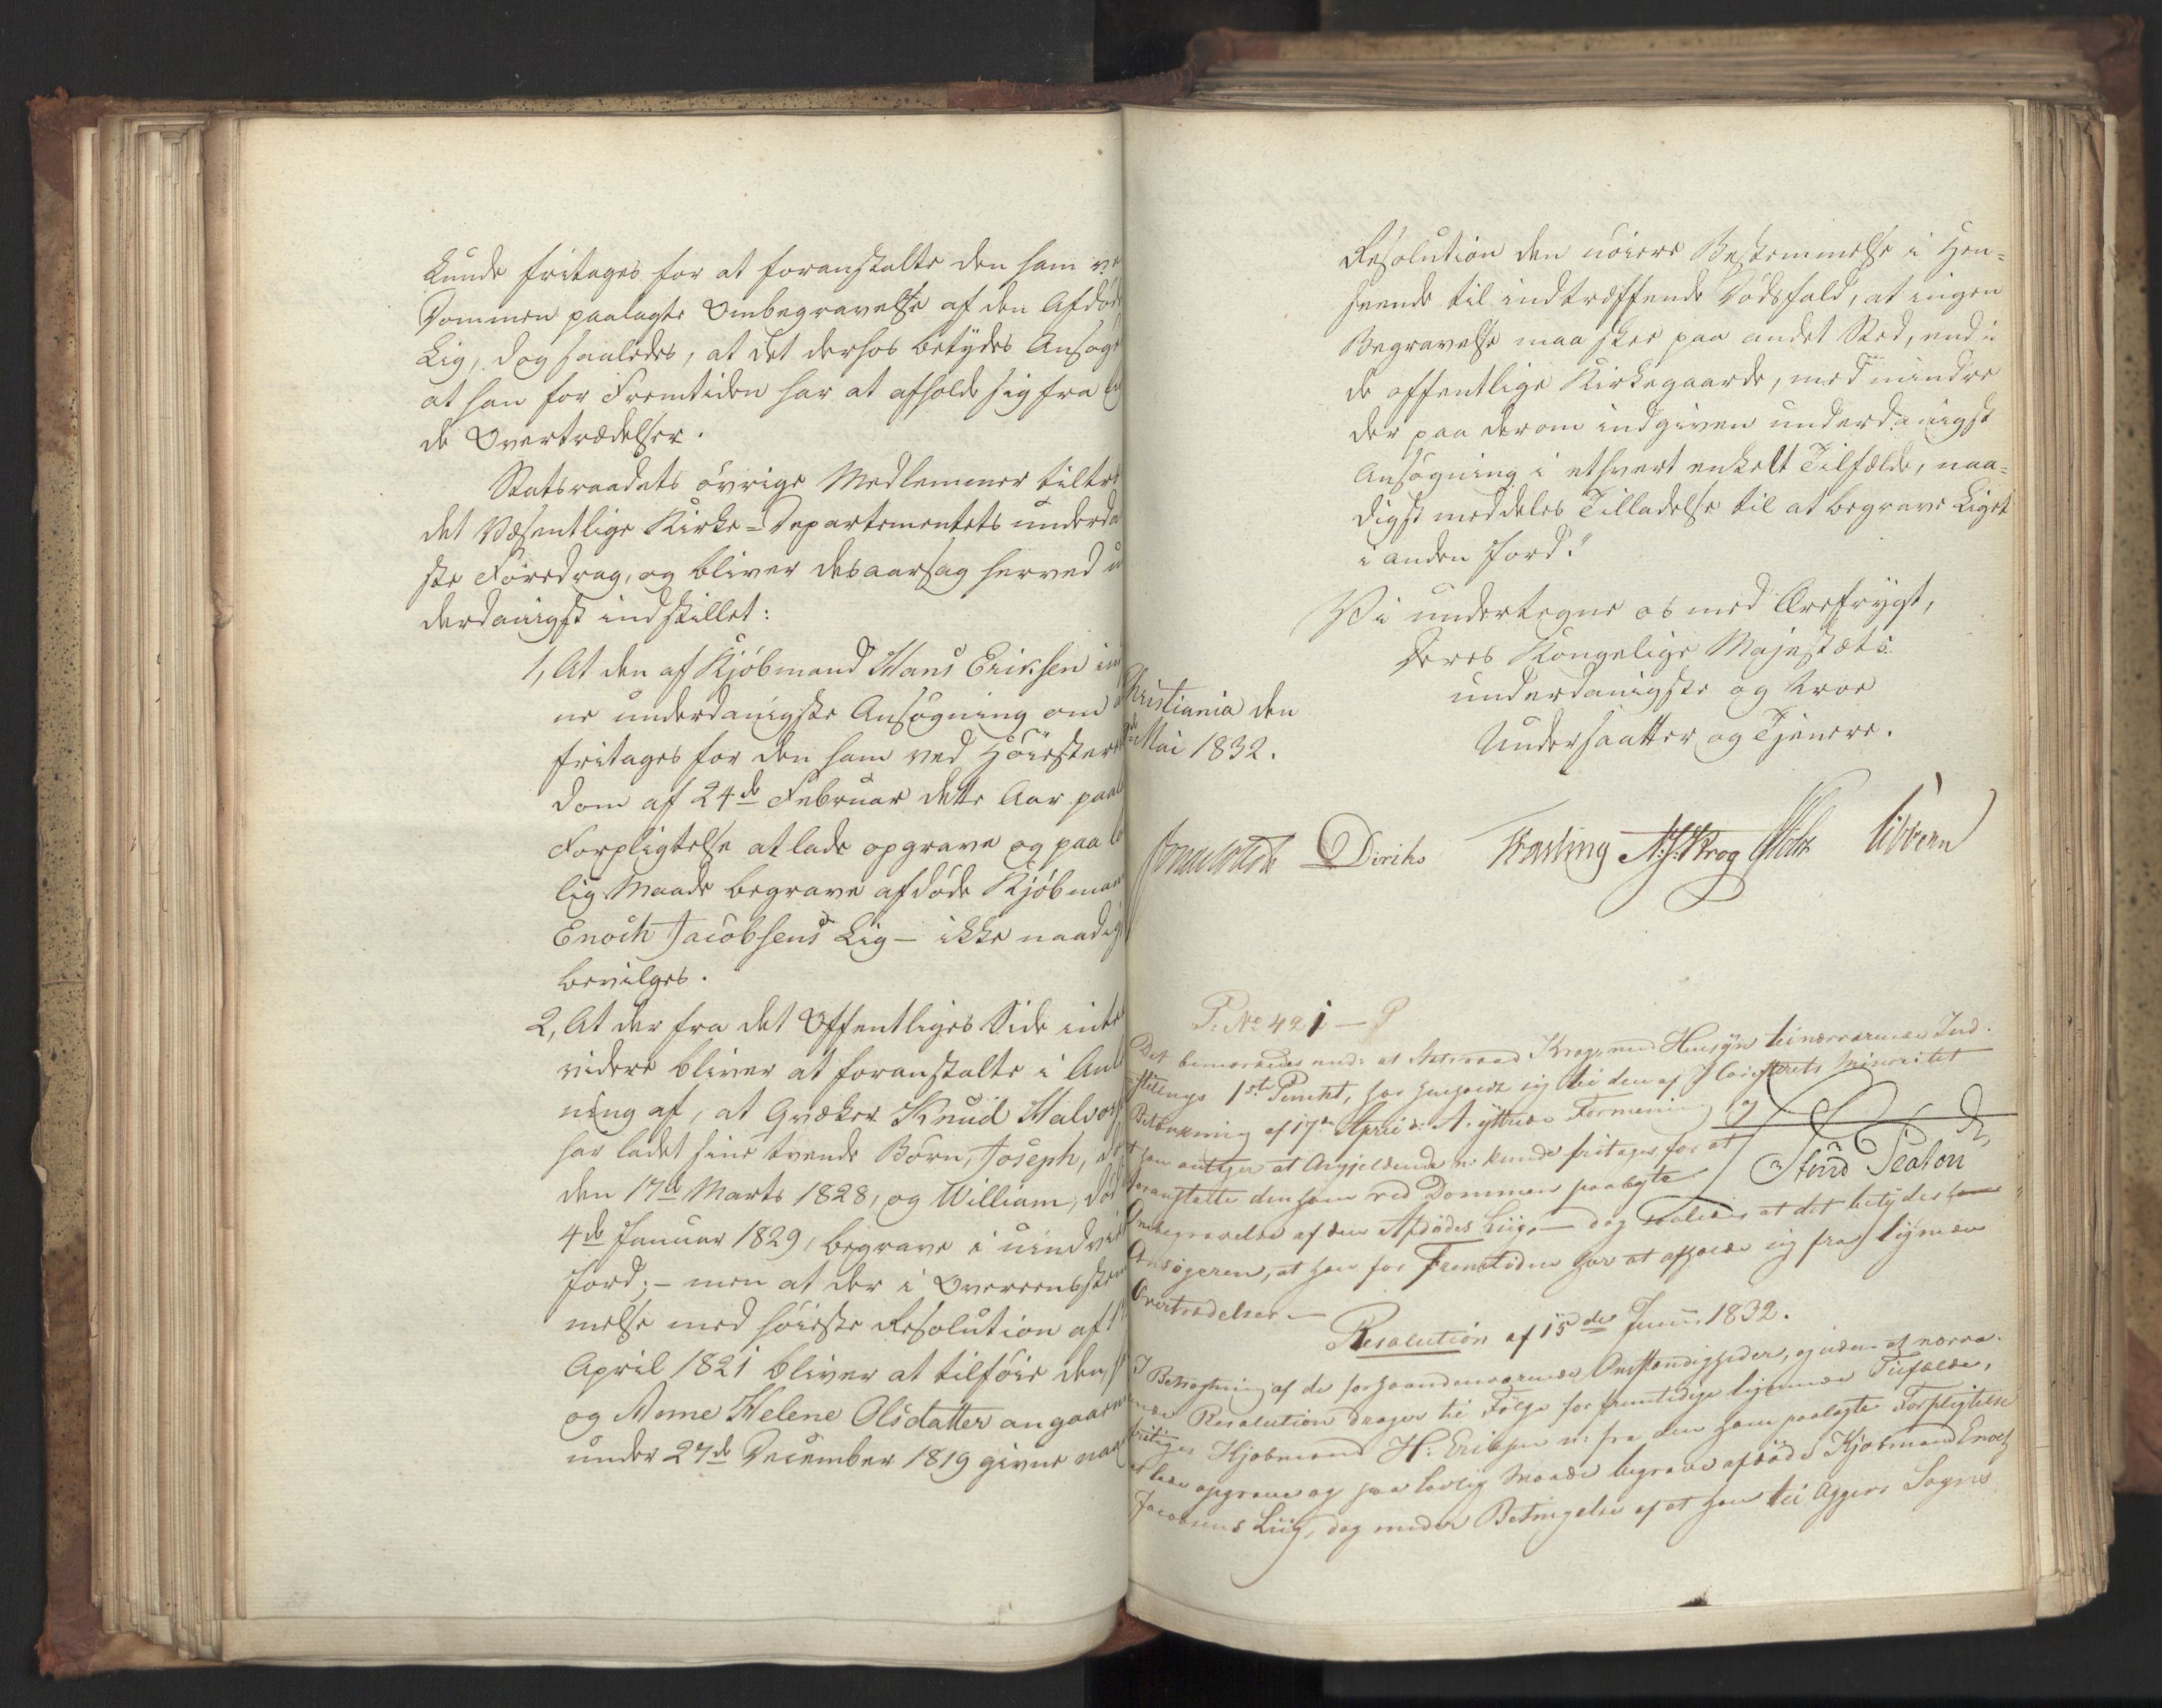 kunde fritages for at foranstalte den ham ve
Dommen paalagte Ombegravelse af den Afdød
Lig, dog saaledes, at det derhos betydes Ansøge
at han for Fremtiden har at afholde sig fra
de Overtrædelser.
Statsraadets øvrige Medlemmer tiltræ
det Væsentlige Kirke-Departementets underda
ste Foredrag, og bliver desaarsag herved u
derdanigst indstillet:
1, At den af Kjöbmand Hans Eriksen in
ne underdanigste Ansøgning om
fritages for den ham ved Høiestere
Dom af 24de Februar dette Aar paal
Forpligtelse at lade opgrave og paa lo
lig Maade begrave afdøde Kjöbman
Enoch Jacobsens Lig – ikke naadig
bevilges.
2, At der fra det Offentliges Side intet
videre bliver at foranstalte i Anl
ning af, at Qvæker Knud Halvors
har ladet sine tvende Børn, Joseph, dø
den 17de Marts 1828, og William, død
4de Januar 1829, begrave i uindvie
Jord; – men at der i Overeensstem
melse med høieste Resolution af 1
April 1821 bliver at tilføie den,
og Anne Helene Olsdatter angaaen
under 27de December 1819 givne naa
Resolution den nøiere Bestemmelse i Hen-
seende til indtræffende Dødsfald, at ingen
Begravelse maa skee paa andet Sted, end i
de offentlige Kirkegaarde, med mindre
der paa derom indgiven underdanigst
Ansøgning i ethvert enkelt Tilfælde, naa-
digst meddeles Tilladelse til at begrave Liget
i anden Jord."
Vi undertegne os med Ærefrygt,
Deres Kongelige Majestæts
underdanigste og troe
Undersaatter og Tjenere.
Christiania den
Mai 1832.
Diriks Fasting Krog Holst Vibbern
P. No 421 – P
Det bemærkedes und: at Statsraad Krog, med Hensyn til nærværende Ind-
stillings 1ste Punkt, har henholdt sig til den af Høiesterets Minoritet
Betænkning af 17de April d: A. yttrede Formening og
han antager at Angjeldende n: kunde fritages for at
foranstalte den ham ved Dommen paalagte
Ombegravelse af den Afdødes Liig, – dog saaledes at det betydes
Ansøgeren, at han for Fremtiden har at afholde sig fra lignende
Overtrædelser. –
Resolution af 15de Junii 1832.
I Betragtning af de forhaandenværende Omstændigheder, og uden at nærvæ-
rende Resolution drages til Følge for fremtidige lignende Tilfælde,
fritages Kjøbmand H: Eriksen n: fra den ham paalagte Forpligtelse
at lade opgrave og paa lovlig Maade begrave afdøde Kjøbmand Enoch
Jacobsens Liig, dog under Betingelse af at han til Aggers Sogns